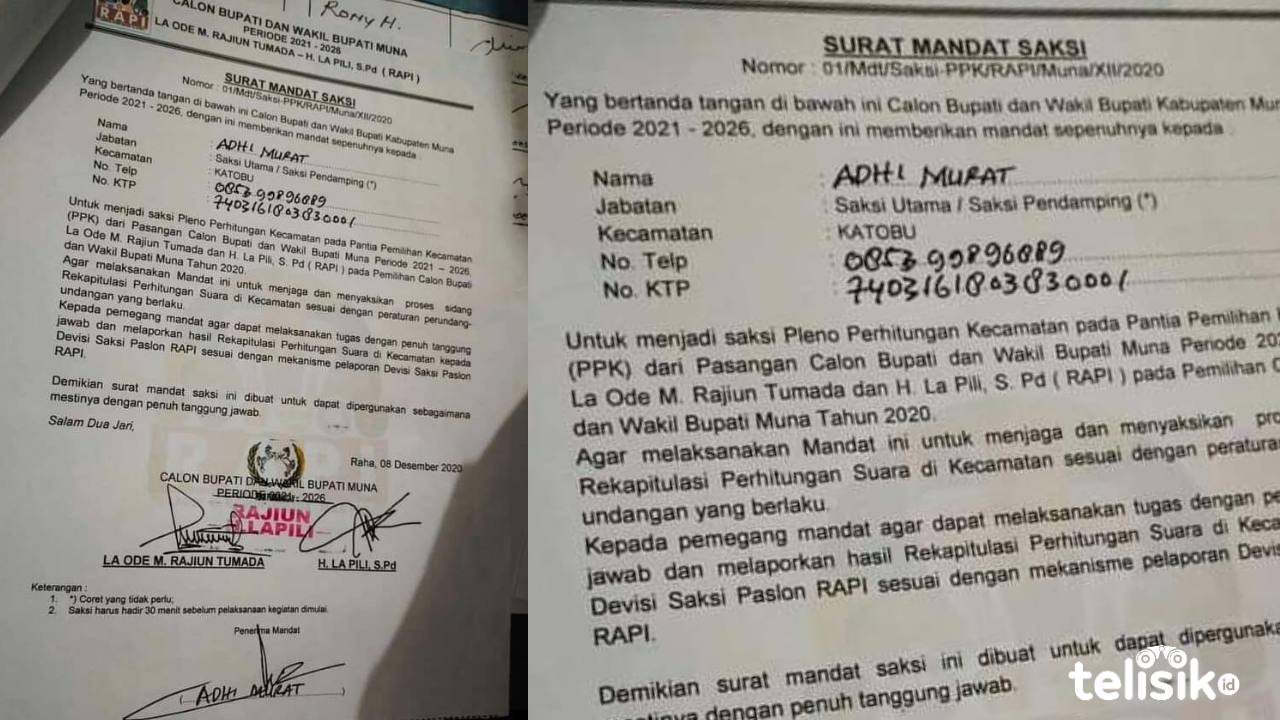 RAPI
CALON BUPATI DAN WAKIL BUPATI MUNA
PERIODE 2021 - 2026
LA ODE M. RAJIUN TUMADA – H. LA PILI, S.Pd ( RAPI )
ROMY H.
SURAT MANDAT SAKSI
Nomor : 01/Mdt/Saksi-PPK/RAPI/Muna/XII/2020
Yang bertanda tangan di bawah ini Calon Bupati dan Wakil Bupati Kabupaten Muna
Periode 2021 - 2026, dengan ini memberikan mandat sepenuhnya kepada :
Nama : ADHI MURAT
Jabatan : Saksi Utama / Saksi Pendamping (*)
Kecamatan : KATOBU
No. Telp : 085399896889
No. KTP : 7403161803830001
Untuk menjadi saksi Pleno Perhitungan Kecamatan pada Pantia Pemilihan Kecamatan
(PPK) dari Pasangan Calon Bupati dan Wakil Bupati Muna Periode 2021 – 2026,
La Ode M. Rajiun Tumada dan H. La Pili, S. Pd ( RAPI ) pada Pemilihan Calon Bupati
dan Wakil Bupati Muna Tahun 2020.
Agar melaksanakan Mandat ini untuk menjaga dan menyaksikan proses sidang
Rekapitulasi Perhitungan Suara di Kecamatan sesuai dengan peraturan perundang-
undangan yang berlaku.
Kepada pemegang mandat agar dapat melaksanakan tugas dengan penuh tanggung
jawab dan melaporkan hasil Rekapitulasi Perhitungan Suara di Kecamatan kepada
Devisi Saksi Paslon RAPI sesuai dengan mekanisme pelaporan Devisi Saksi Paslon
RAPI.
Demikian surat mandat saksi ini dibuat untuk dapat dipergunakan sebagaimana
mestinya dengan penuh tanggung jawab.
Salam Dua Jari,
Raha, 08 Desember 2020
CALON BUPATI DAN WAKIL BUPATI MUNA
PERIODE 2021 - 2026
RAJIUN
LAPILI
LA ODE M. RAJIUN TUMADA H. LA PILI, S.Pd
Keterangan :
1. *) Coret yang tidak perlu;
2. Saksi harus hadir 30 menit sebelum pelaksanaan kegiatan dimulai.
Penerima Mandat
ADHI MURAT
SURAT MANDAT SAKSI
Nomor : 01/Mdt/Saksi-PPK/RAPI/Muna/XII/2020
Yang bertanda tangan di bawah ini Calon Bupati dan Wakil Bupati Kabupaten Mun
Periode 2021 - 2026, dengan ini memberikan mandat sepenuhnya kepada :
Nama : ADHI MURAT
Jabatan : Saksi Utama / Saksi Pendamping (*)
Kecamatan : KATOBU
No. Telp : 085399896889
No. KTP : 7403161803830001
Untuk menjadi saksi Pleno Perhitungan Kecamatan pada Pantia Pemilihan
(PPK) dari Pasangan Calon Bupati dan Wakil Bupati Muna Periode 202
La Ode M. Rajiun Tumada dan H. La Pili, S. Pd ( RAPI ) pada Pemilihan C
dan Wakil Bupati Muna Tahun 2020.
Agar melaksanakan Mandat ini untuk menjaga dan menyaksikan pro
Rekapitulasi Perhitungan Suara di Kecamatan sesuai dengan peratura
undangan yang berlaku.
Kepada pemegang mandat agar dapat melaksanakan tugas dengan pe
jawab dan melaporkan hasil Rekapitulasi Perhitungan Suara di Keca
Devisi Saksi Paslon RAPI sesuai dengan mekanisme pelaporan Devis
RAPI.
Demikian surat mandat saksi ini dibuat untuk dapat dipergunaka
mestinya dengan penuh tanggung jawab.
telisik.id